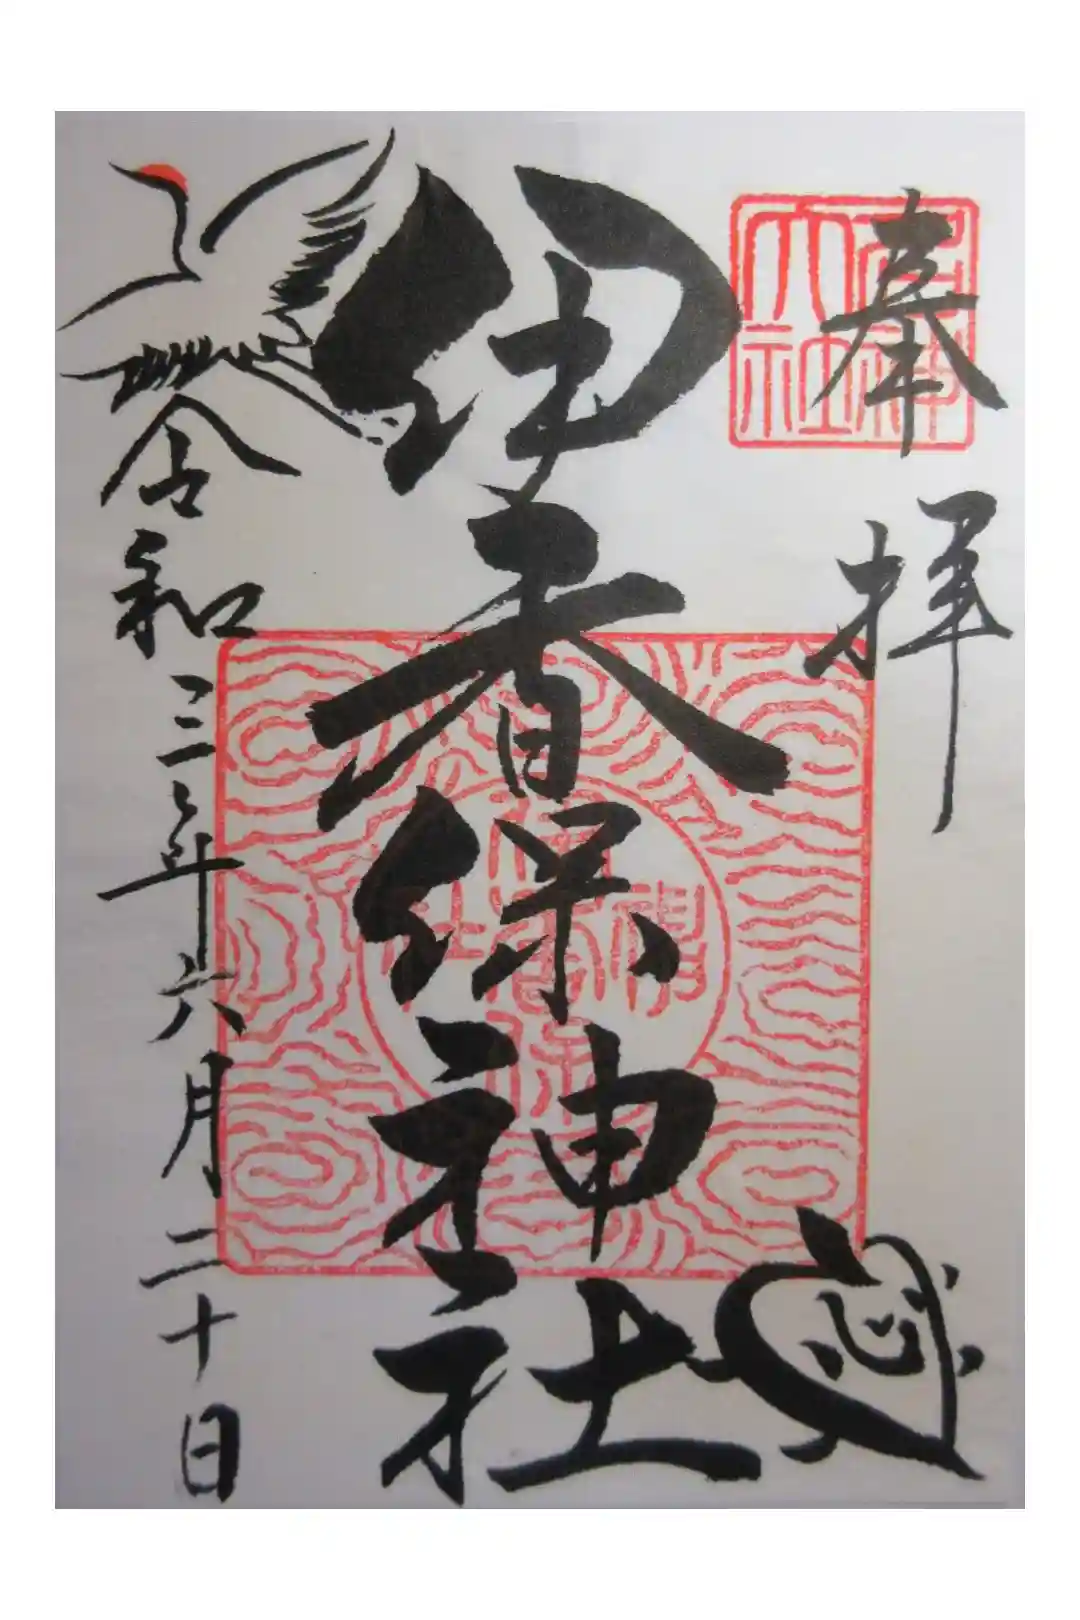 奉拝
名神
大社
伊香保神社
令和三年六月二十日